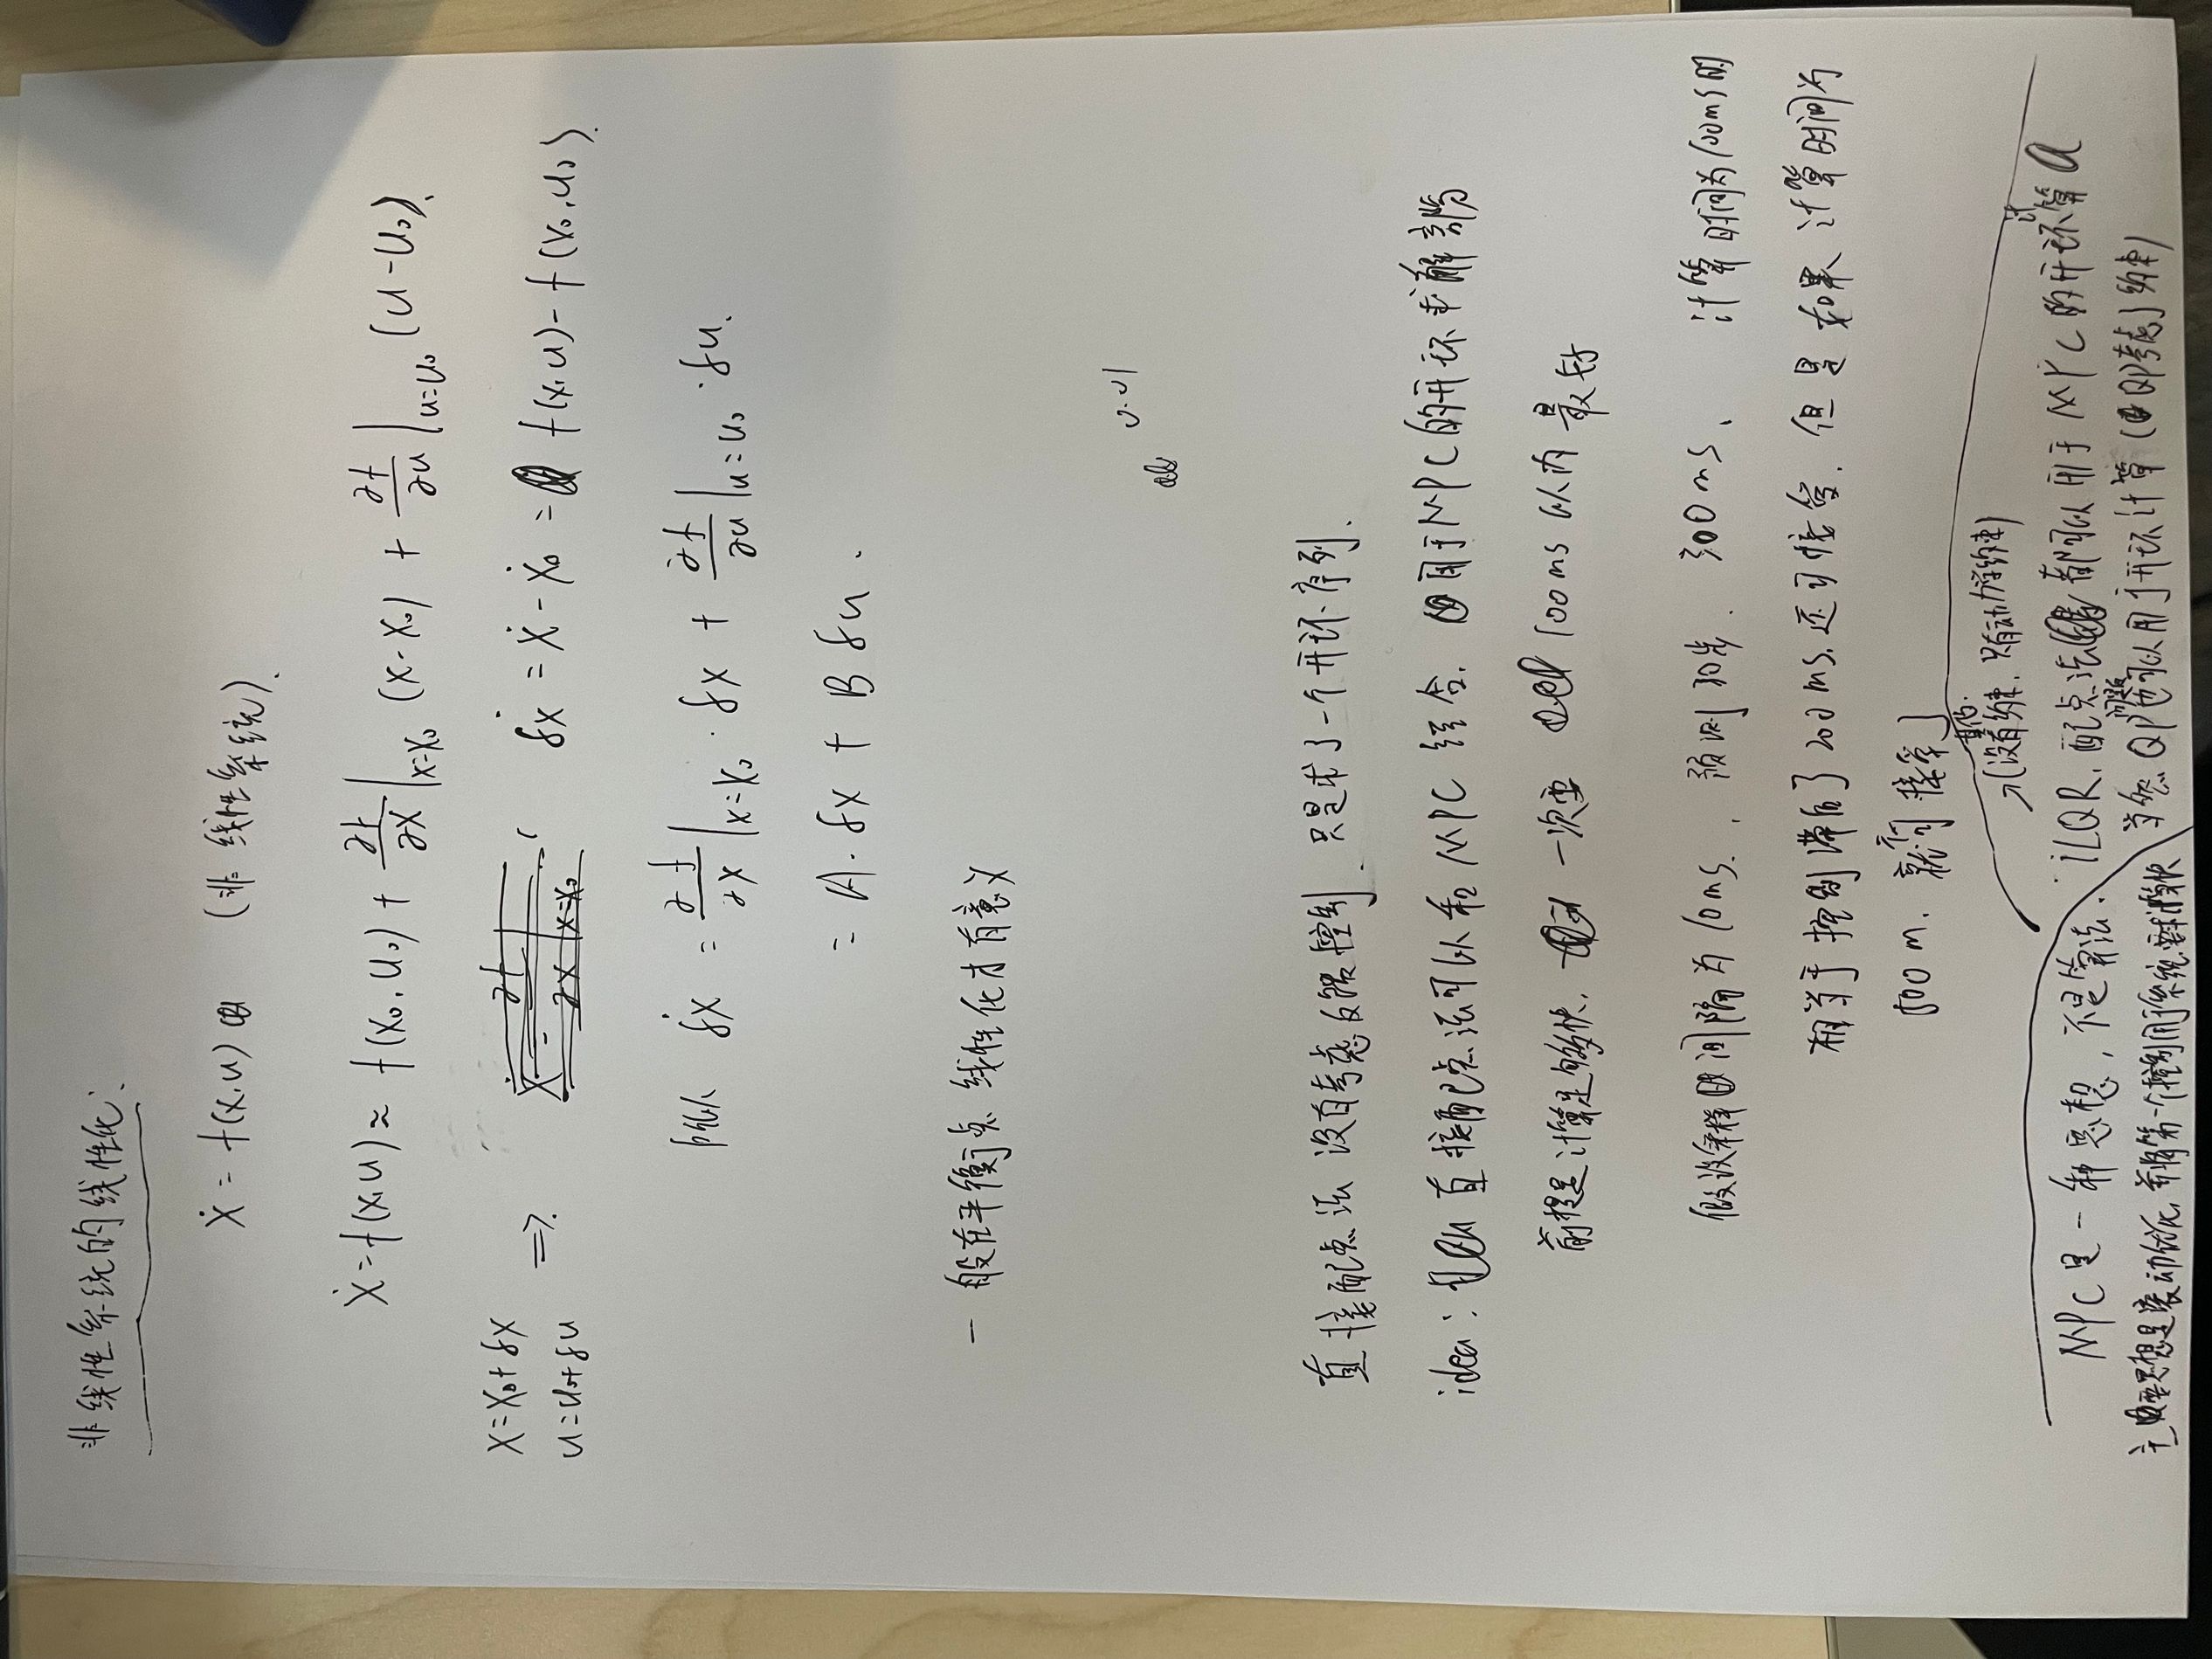 非线性系统的线性化：
ẋ = f(x,u) (非线性系统).
ẋ = f(x,u) ≈ f(x₀,u₀) + ∂f/∂x|x=x₀ (x-x₀) + ∂f/∂u|u=u₀ (u-u₀).
x=x₀+δx
u=u₀+δu ⇒ δẋ = ẋ - ẋ₀ = f(x,u) - f(x₀,u₀).
所以 δẋ = ∂f/∂x|x=x₀ · δx + ∂f/∂u|u=u₀ · δu.
= A·δx + B δu.
一般在平衡点 线性化才有意义
0.01
直接配点法 没有考虑反馈控制. 只是求了一个开环序列.
idea: 直接配点法可以和 MPC 结合. 用于MPC的开环求解部分
前提是计算足够快, 一次要 100ms 以内 最好
假设采样间隔为10ms, 预测30步. 300ms. 计算时间为100ms时
相当于控制滞后了200ms. 还可接受. 但是如果 计算时间为
500m. 就不可接受了
(没有其他约束, 只有动力学约束)
MPC是一种思想, 不是算法.
主要思想是滚动优化, 并将第一个控制用于系统, 要求计算快
iLQR, 配点法 都可以用于MPC的开环计算
当然 QP问题也可以用于开环计算 (QP考虑了约束)